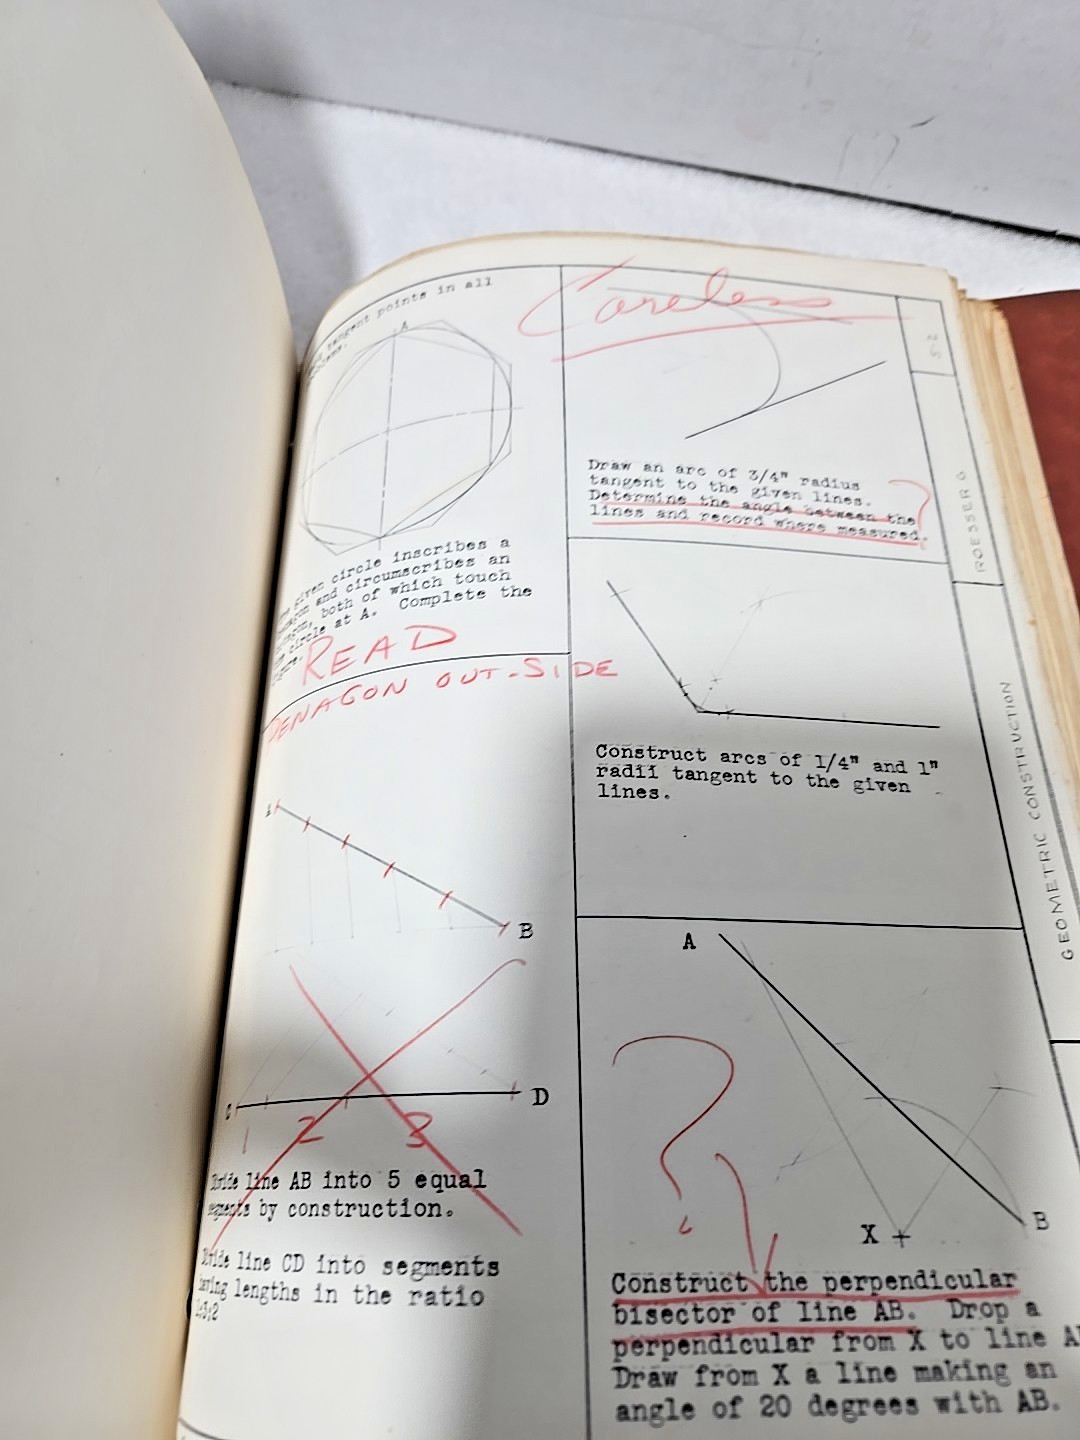 tangent points in all
A
given circle inscribes a
and circumscribes an
both of which touch
circle at A. Complete the
READ
PENAGON OUT-SIDE
A
B
C
D
1 2 3
Divide line AB into 5 equal
segments by construction.
Divide line CD into segments
having lengths in the ratio
1:3:2
Careless
Draw an arc of 3/4" radius
tangent to the given lines.
Determine the angle between the
lines and record where measured.
?
Construct arcs of 1/4" and 1"
radii tangent to the given
lines.
A
?
B
X
Construct the perpendicular
bisector of line AB. Drop a
perpendicular from X to line
Draw from X a line making an
angle of 20 degrees with AB.
25
ROESSER G
GEOMETRIC CONSTRUCTION